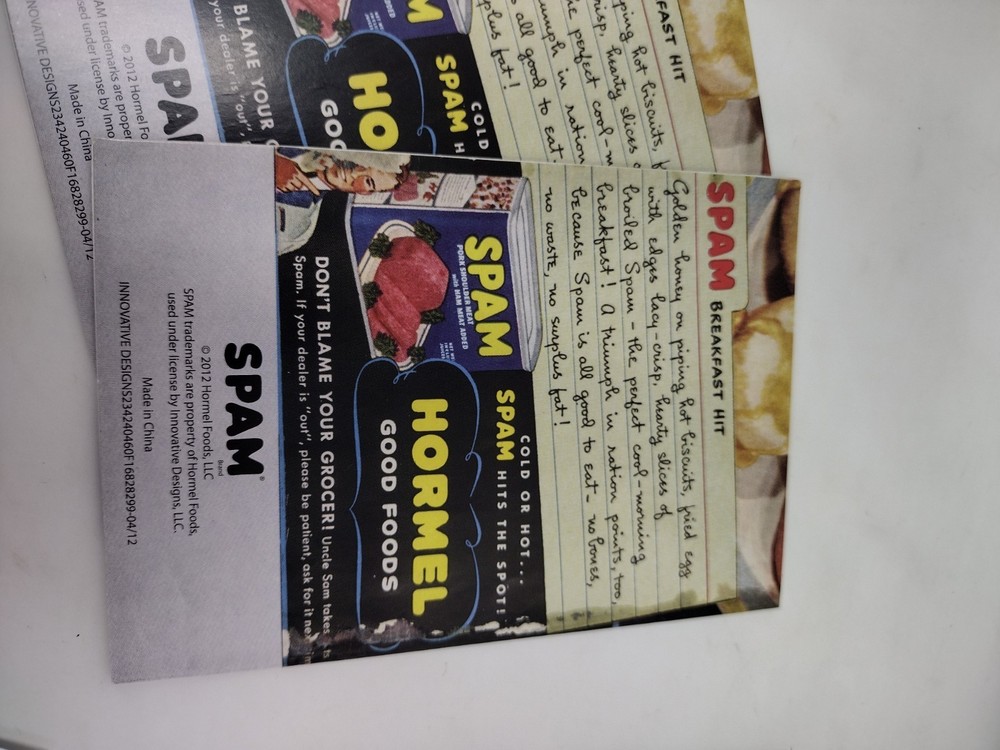 SPAM BREAKFAST HIT
Golden honey on piping hot biscuits, fried egg
with edges lacy-crisp, hearty slices of
broiled Spam - the perfect cool-morning
breakfast! A triumph in ration points, too,
because Spam is all good to eat - no bones,
no waste, no surplus fat!
SPAM
PORK SHOULDER MEAT
with HAM MEAT ADDED
COLD OR HOT...
SPAM HITS THE SPOT!
HORMEL
GOOD FOODS
DON'T BLAME YOUR GROCER! Uncle Sam takes
Spam. If your dealer is "out", please be patient, ask for it
SPAM®
Brand
© 2012 Hormel Foods, LLC
SPAM trademarks are property of Hormel Foods,
used under license by Innovative Designs, LLC.
Made in China
INNOVATIVE DESIGNS234240460F16828299-04/12
FAST HIT
piping hot biscuits,
crisp, hearty slices
the perfect cool-m
umph in ration
all good to eat-
plus fat!
M
ADDED
COLD
SPAM H
HO
GOO
BLAME YOUR
your dealer is "out",
SPA
© 2012 Hormel Fo
AM trademarks are prope
used under license by Inno
Made in China
NOVATIVE DESIGNS234240460F16828299-04/12